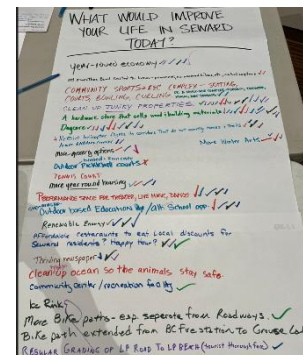 WHAT WOULD IMPROVE
YOUR LIFE IN SEWARD
TODAY?
year-round economy
COMMUNITY SPORTS
COURTS, BOWLING, CURLING
CLEAN UP JUNKY PROPERTIES
A hardware store that sells building materials
Daycare
More Winter Arts
More grocery options
Outdoor Pickleball courts
TENNIS COURT
more year round housing
PERFORMANCE SPACE FOR THEATER, LIVE MUSIC, DANCE
Outdoor based Education School opp
Renewable Energy
Affordable restaurants to eat Local discounts for
Seward residents? Happy Hour?
Thriving newspaper
Clean up ocean so the animals stay safe.
Community center / recreation facility
Ice Rink
More Bike paths - esp. seperate from Roadways.
Bike path extended from BC Fire station to Grouse
REGULAR GRADING OF LP ROAD TO LP BEACH (tourist thoroughfare)